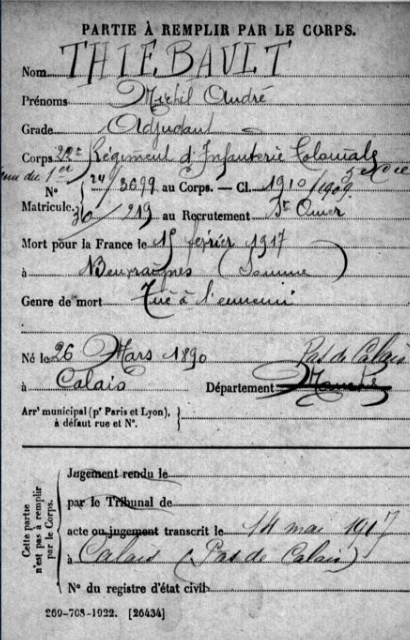 PARTIE À REMPLIR PAR LE CORPS.
Nom THIEBAULT
Prénoms Michel André
Grade Adjudant
Corps 22e Régiment d'Infanterie Coloniale
venu du 1er
N° 24/3699 au Corps. — Cl. 1910/1909
Matricule. 36/219 au Recrutement St Omer
Mort pour la France le 15 février 1917
à Beuvraignes (Somme)
Genre de mort Tué à l'ennemi
Né le 26 Mars 1890 Pas de Calais
à Calais Département Manche
Arrt municipal (pr Paris et Lyon),
à défaut rue et N°.
Cette partie
n'est pas à remplir
par le Corps.
Jugement rendu le
par le Tribunal de
acte ou jugement transcrit le 14 mai 1917
à Calais (Pas de Calais)
N° du registre d'état civil
269-708-1922. [26434]